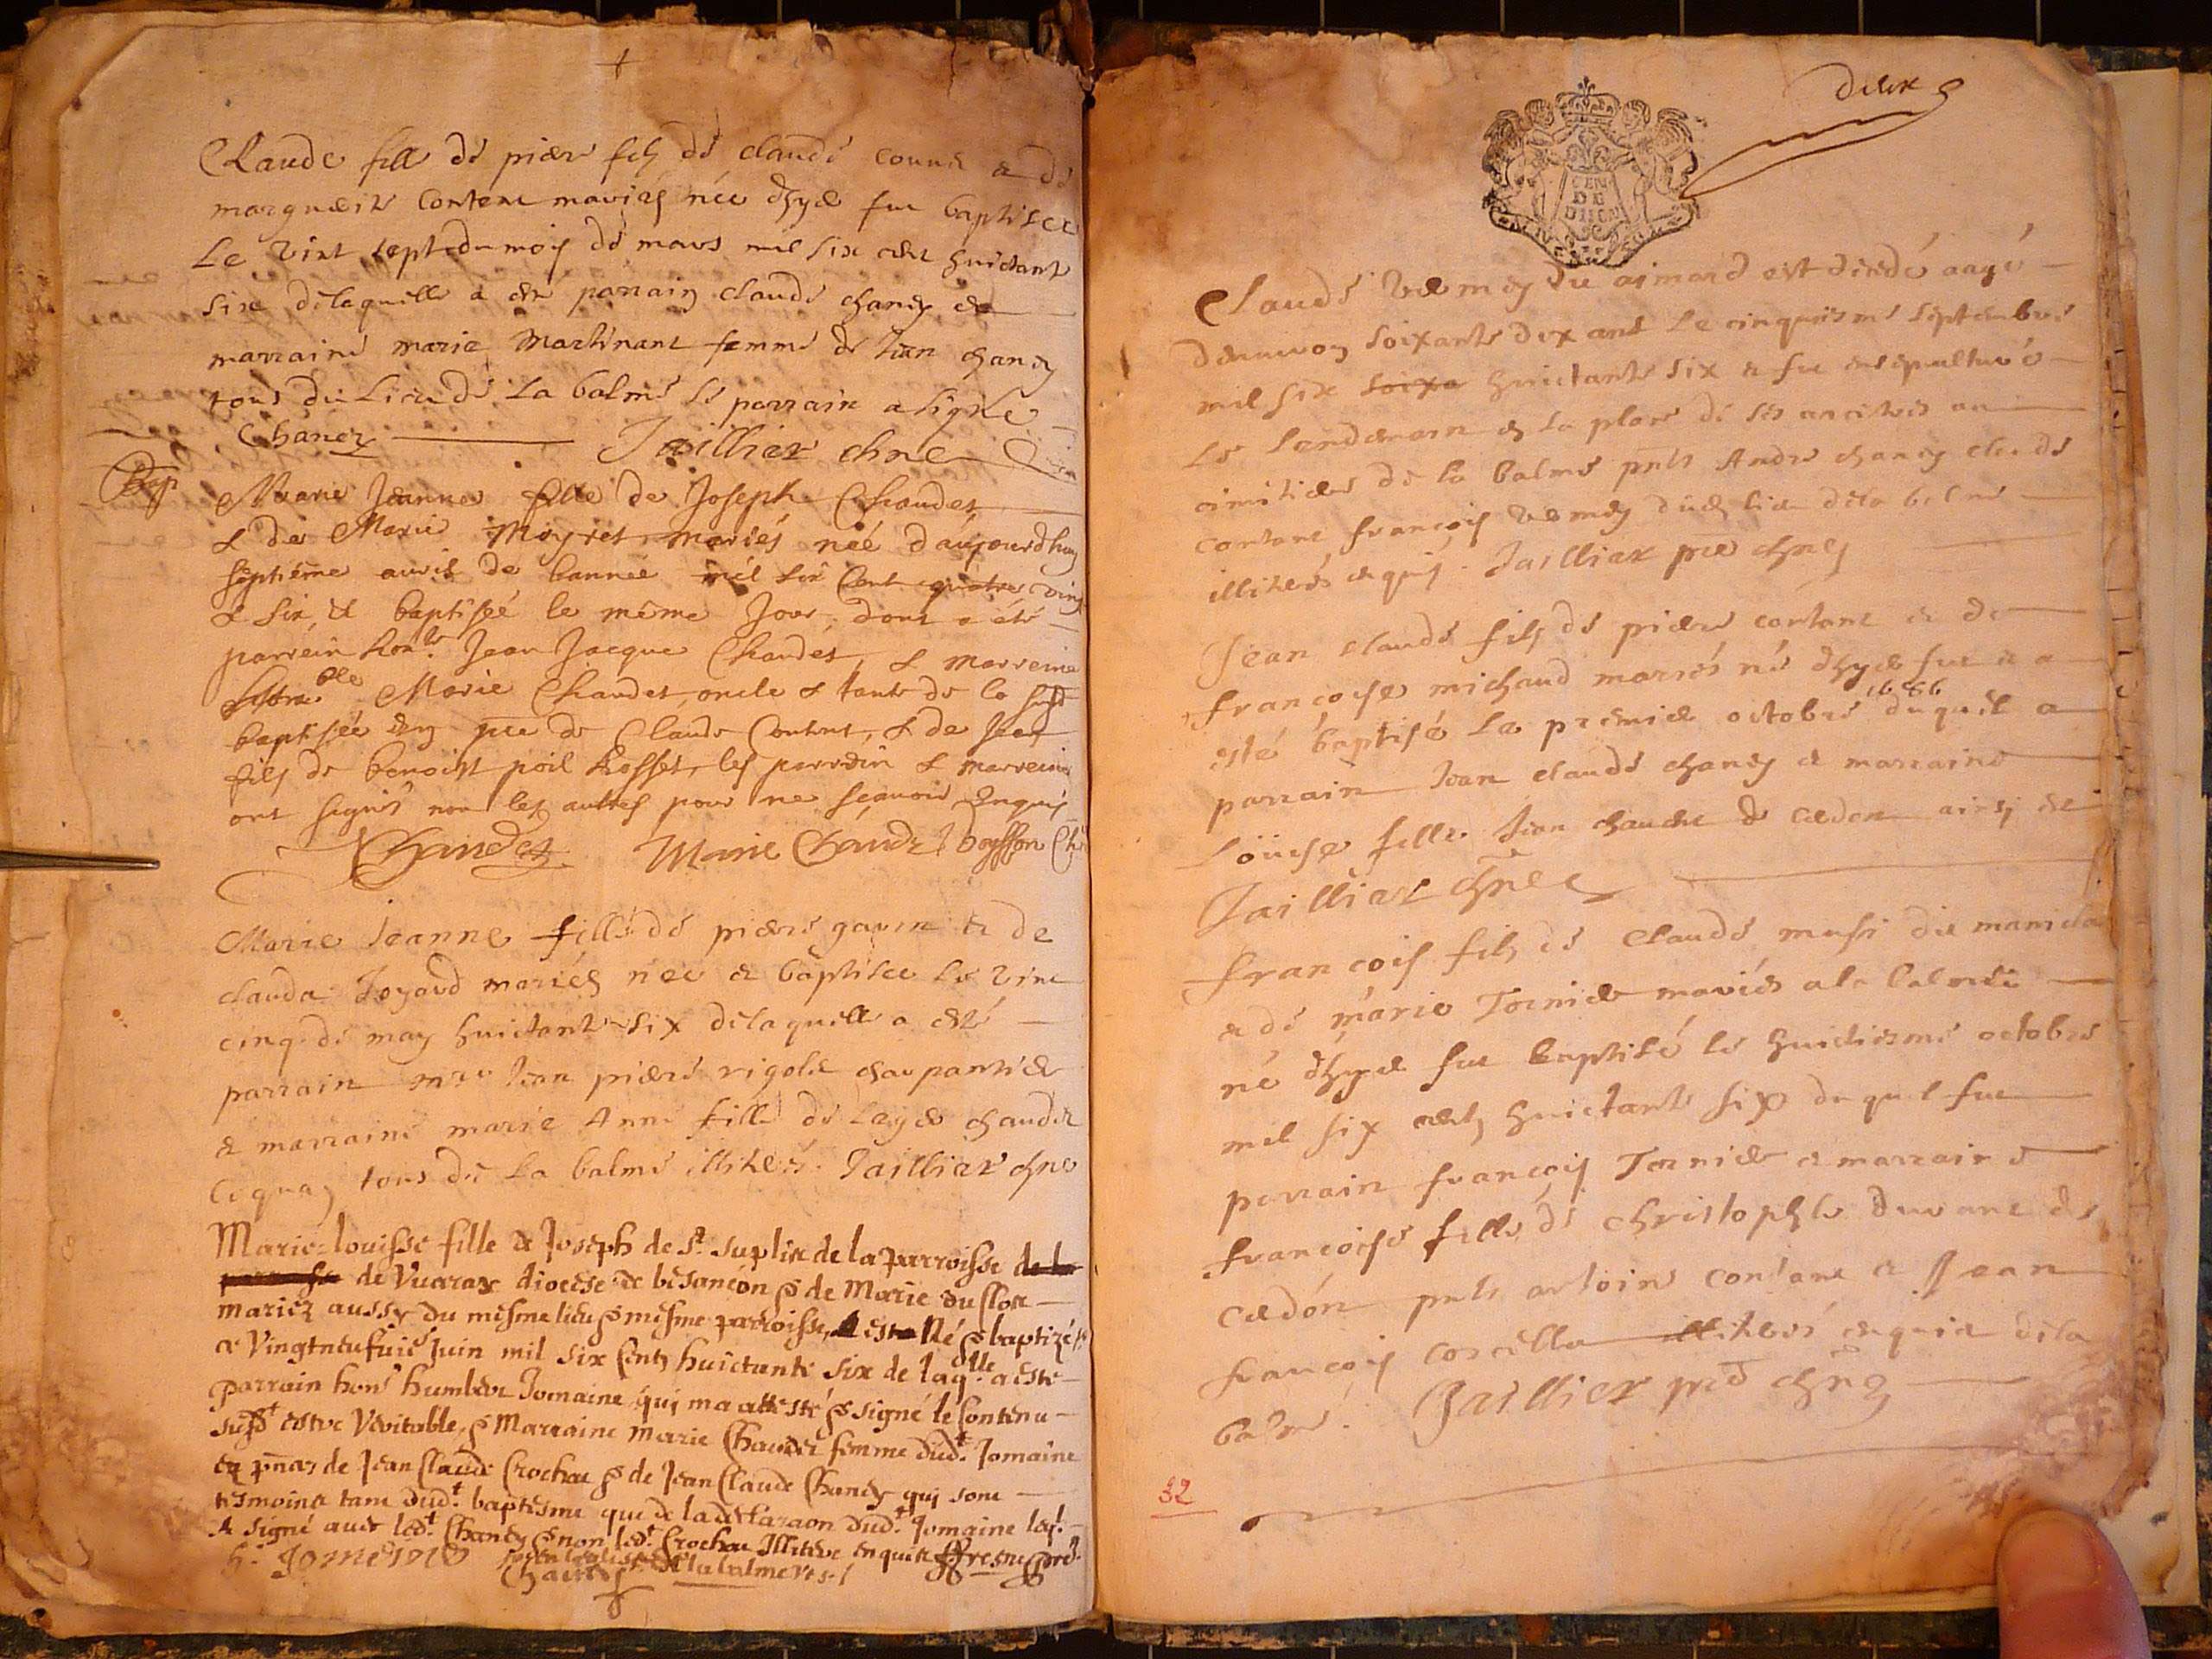 Claude fille de piere filz de claude et de
margueite Contene mariez née dhyer fut baptisee
Le vint sept du mois de mars mil six cent huictante
sixe delaquelle a esté parrain claude chanez et
marraine marie Martinant femme de Jean chanez
tous du Lieu de La balme le parrain a signé
Chanez Jaillier chne
Bap
Marie Jeanne fille de Joseph Chaudet
& de Marie Moyret mariés née d'aujourdhuy
septiéme avril de l'année mil six Cent quatre ving
& six, & baptisée le même Jour, dont a été
parrein hon.le Jean Jacque Chaudet, & marreine
Marie Chaudet, oncle & tante de la susd
baptisée de Claude Contene, & de Jean
fils de benoist poil Rosset, les parrein & marreine
ont signés non les autres pour ne sçavoir Enquis
Chaudet Marie Chaudt
Marie Jeanne fille de piere gavin et de
clauda Joyard mariés née et baptisee Le vint
cinq de may huictante six delaquelle a esté
parrain mre Jean piere rigole charpantier
et marraine marie Anne fille de Leger chaudet
tous de La balme illiterés. Jaillier chne
Marie-louisse fille de Joseph de st. suplix de la parroisse
de Vuarax diocese de besançon & de Marie duflon
mariez aussy du mesme lieu & mesme parroisse, Né & baptizé
ce Vingtneufvie Juin mil six Centz huictante six de laqlle a esté
parrain hon humbert Jomaine qui ma attesté & signé le Contenu
susdt estre Veritable, & Marraine Marie Chaudet femme dudt. Jomaine
en pnas de Jean Claude Crochat & de Jean Claude Chanez qui sont
tesmoins tant dudt. baptesme que de la desclaraon dudt. Jomaine leql.
A signé avec ledt. Chanez & non ledt. Crochat Illiteré enquis
h. Jomeine
deux
GEN
DE
DIJON
Claude du aimard est decedé aagé
denviron soixante dix ans Le cinquiesme septembre
mil six soixa huictante six et fut ensepulturé
Le Lendemain en La place de ses ancestres au
cimitiere de la balme pnts Andre chanez claude
contene françois dud lieu dela balme
illiterés enquis. Jaillier pre chne
Jean claude filz de piere contant et de
françoise michaud mariés né dhyer fut et a
esté baptisé Le premier octobre 1686 duquel a
parrain Jean claude chanez et marraine
Loüise fille Jean chauche de cerdon ainsi est
Jaillier chne
françois filz de Claude musi dit
et de marie Tornier mariés a la balme
né dhyer fut baptisé le huictiesme octobre
mil six centz huictante six duquel fut
parrain françois Tornier et marraine
françoise fille de christophle duvant de
cerdon pnts antoine contant et Jean
françois corcella illiterés enquis dela
balme. Jaillier pre chne
32